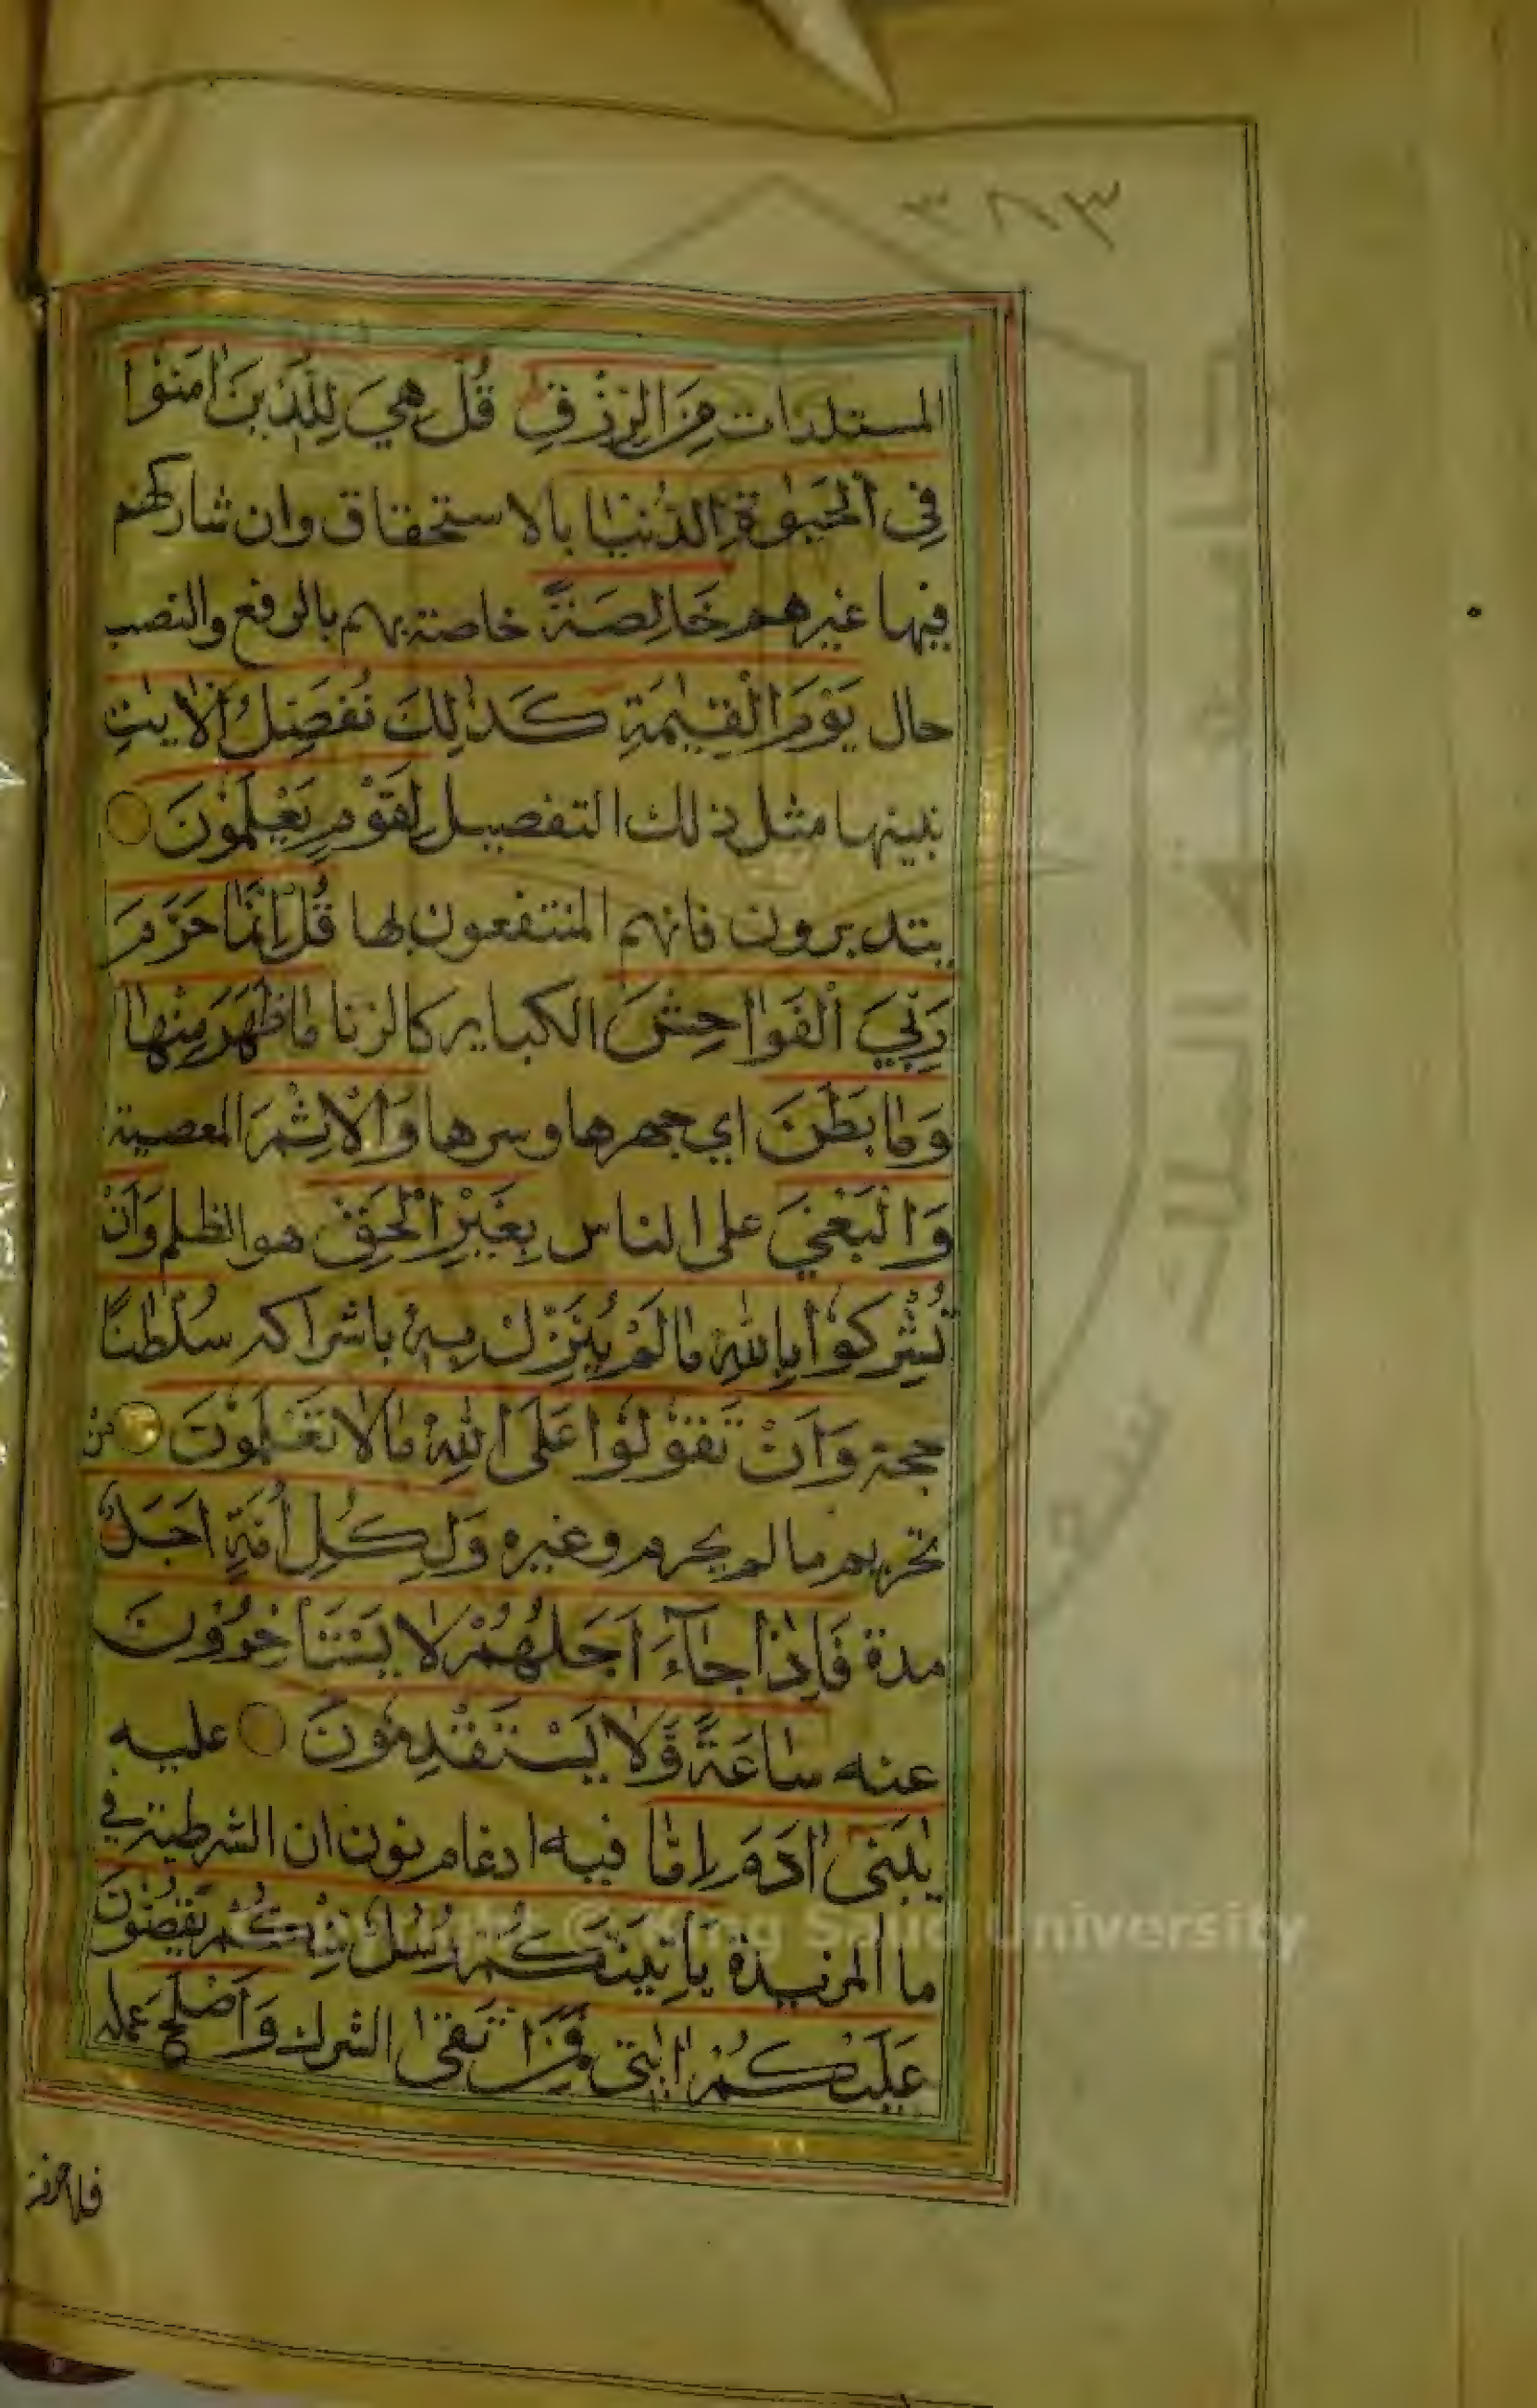 ٣٨٣
المستلذات مِنَ الرِّزْقِ قُلْ هِيَ لِلَّذِينَ اٰمَنُوا
فِي الْحَيٰوةِ الدُّنْيَا بالاستحقاق وان شاركهم
فيها غيرهم خَالِصَةً خاصة بهم بالرفع والنصب
حال يَوْمَ الْقِيٰمَةِ كَذٰلِكَ نُفَصِّلُ الْاٰيٰتِ
نبينها مثل ذلك التفصيل لِقَوْمٍ يَعْلَمُونَ
يتدبرون فانهم المنتفعون بها قُلْ اِنَّمَا حَرَّمَ
رَبِّيَ الْفَوَاحِشَ الكباير كالزنا مَا ظَهَرَ مِنْهَا
وَمَا بَطَنَ اي جهرها وسرها وَالْاِثْمَ المعصية
وَالْبَغْيَ على الناس بِغَيْرِ الْحَقِّ هو الظلم وَاَنْ
تُشْرِكُوا بِاللّٰهِ مَا لَمْ يُنَزِّلْ بِهٖ باشراكه سُلْطٰنًا
حجة وَاَنْ تَقُولُوا عَلَى اللّٰهِ مَا لَا تَعْلَمُونَ من
تحريم ما لم يحرم وغيره وَلِكُلِّ اُمَّةٍ اَجَلٌ
مدة فَاِذَا جَآءَ اَجَلُهُمْ لَا يَسْتَاْخِرُونَ
عنه سَاعَةً وَّلَا يَسْتَقْدِمُونَ عليه
يٰبَنِيٓ اٰدَمَ اِمَّا فيه ادغام نون ان الشرطية في
ما المزيدة يَاْتِيَنَّكُمْ رُسُلٌ مِّنْكُمْ يَقُصُّونَ
عَلَيْكُمْ اٰيٰتِي فَمَنِ اتَّقٰى الشرك وَاَصْلَحَ عمله
جامعة الملك سعود
Copyright © King Saud University